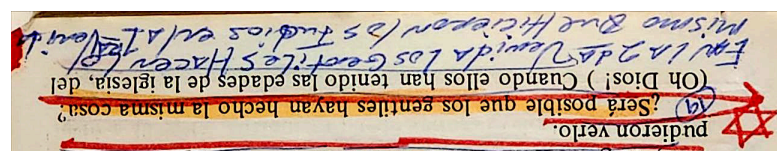 pudieron verlo.
¿Será posible que los gentiles hayan hecho la misma cosa?
(Oh Dios! ) Cuando ellos han tenido las edades de la iglesia, del
En La 2da Venida Los Gentiles Hacen Lo
mismo Que Hicieron Los Judios en La 1ra Venid